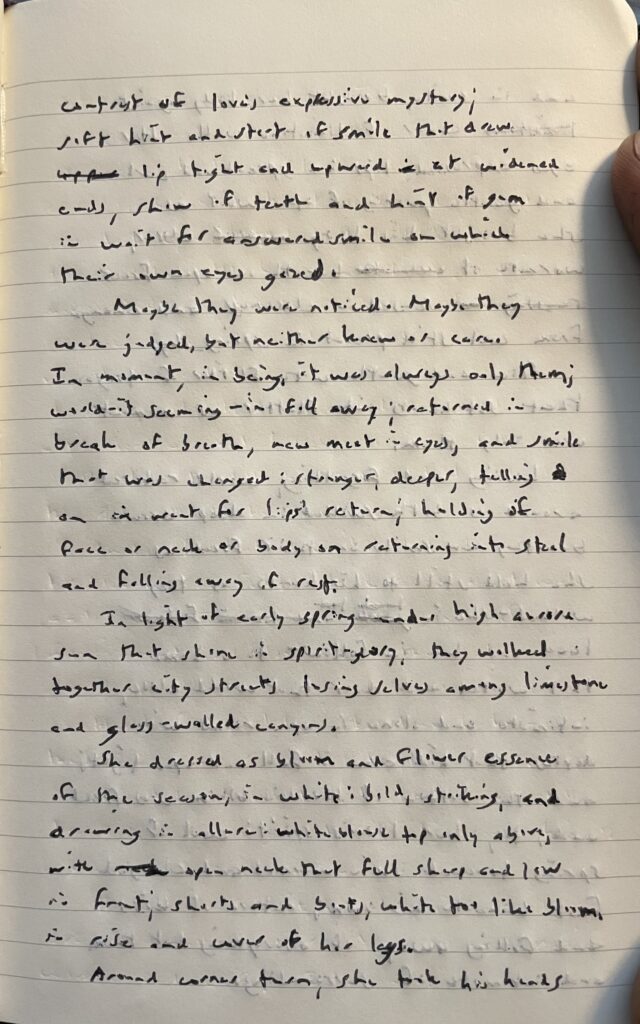 contrast of love's expressive mystery;
soft hint and start of smile that drew
lip tight and upward at widened
ends, show of teeth and hint of gum
in wait for answered smile on which
their own eyes gazed.
Maybe they were noticed. Maybe they
were judged, but neither knew or care.
In moment, in being, it was always only them;
world-it seeming-in fall away; returned in
break of breath, new meet in eyes, and smile
that was changed: stronger, deeper, telling
on in want for lips' return; holding of
face or neck or body on returning into steal
and falling away of rest.
In light of early spring under high aurora
sun that shone in spirit-glory, they walked
together city streets losing selves among limestone
and glass-walled canyons.
She dressed as bloom and flower essence
of the season, in white: bold, striking, and
drawing in allure: white blouse top only above,
with open neck that fell sharp and low
in front; shorts and boots, white too like bloom,
in rise and cover of her legs.
Around corner turn, she took his hands